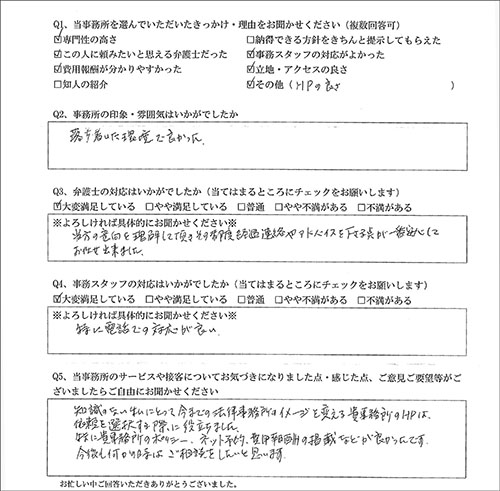 Q1、当事務所を選んでいただいたきっかけ・理由をお聞かせください（複数回答可）
☑専門性の高さ □納得できる方針をきちんと提示してもらえた
☑この人に頼みたいと思える弁護士だった ☑事務スタッフの対応がよかった
☑費用報酬が分かりやすかった ☑立地・アクセスの良さ
□知人の紹介 ☑その他（HPの良さ ）
Q2、事務所の印象・雰囲気はいかがでしたか
落ち着いた環境で良かった。
Q3、弁護士の対応はいかがでしたか（当てはまるところにチェックをお願いします）
☑大変満足している □やや満足している □普通 □やや不満がある □不満がある
※よろしければ具体的にお聞かせください※
当方の意向を理解して頂きその都度経過連絡やアドバイスを下さる点が一番安心して
お任せ出来ました。
Q4、事務スタッフの対応はいかがでしたか（当てはまるところにチェックをお願いします）
☑大変満足している □やや満足している □普通 □やや不満がある □不満がある
※よろしければ具体的にお聞かせください※
特に電話での対応が良い。
Q5、当事務所のサービスや接客についてお気づきになりました点・感じた点、ご意見ご要望等がご
ざいましたらご自由にお聞かせください
知識のない私にとって今までの法律事務所のイメージを変える貴事務所のHPは、
依頼を選択する際に役立ちました。
特に貴事務所のポリシー、ネット予約、費用報酬の掲載などが良かったです。
今後も何かの時はご相談をしたいと思います。
お忙しい中ご回答いただきありがとうございました。